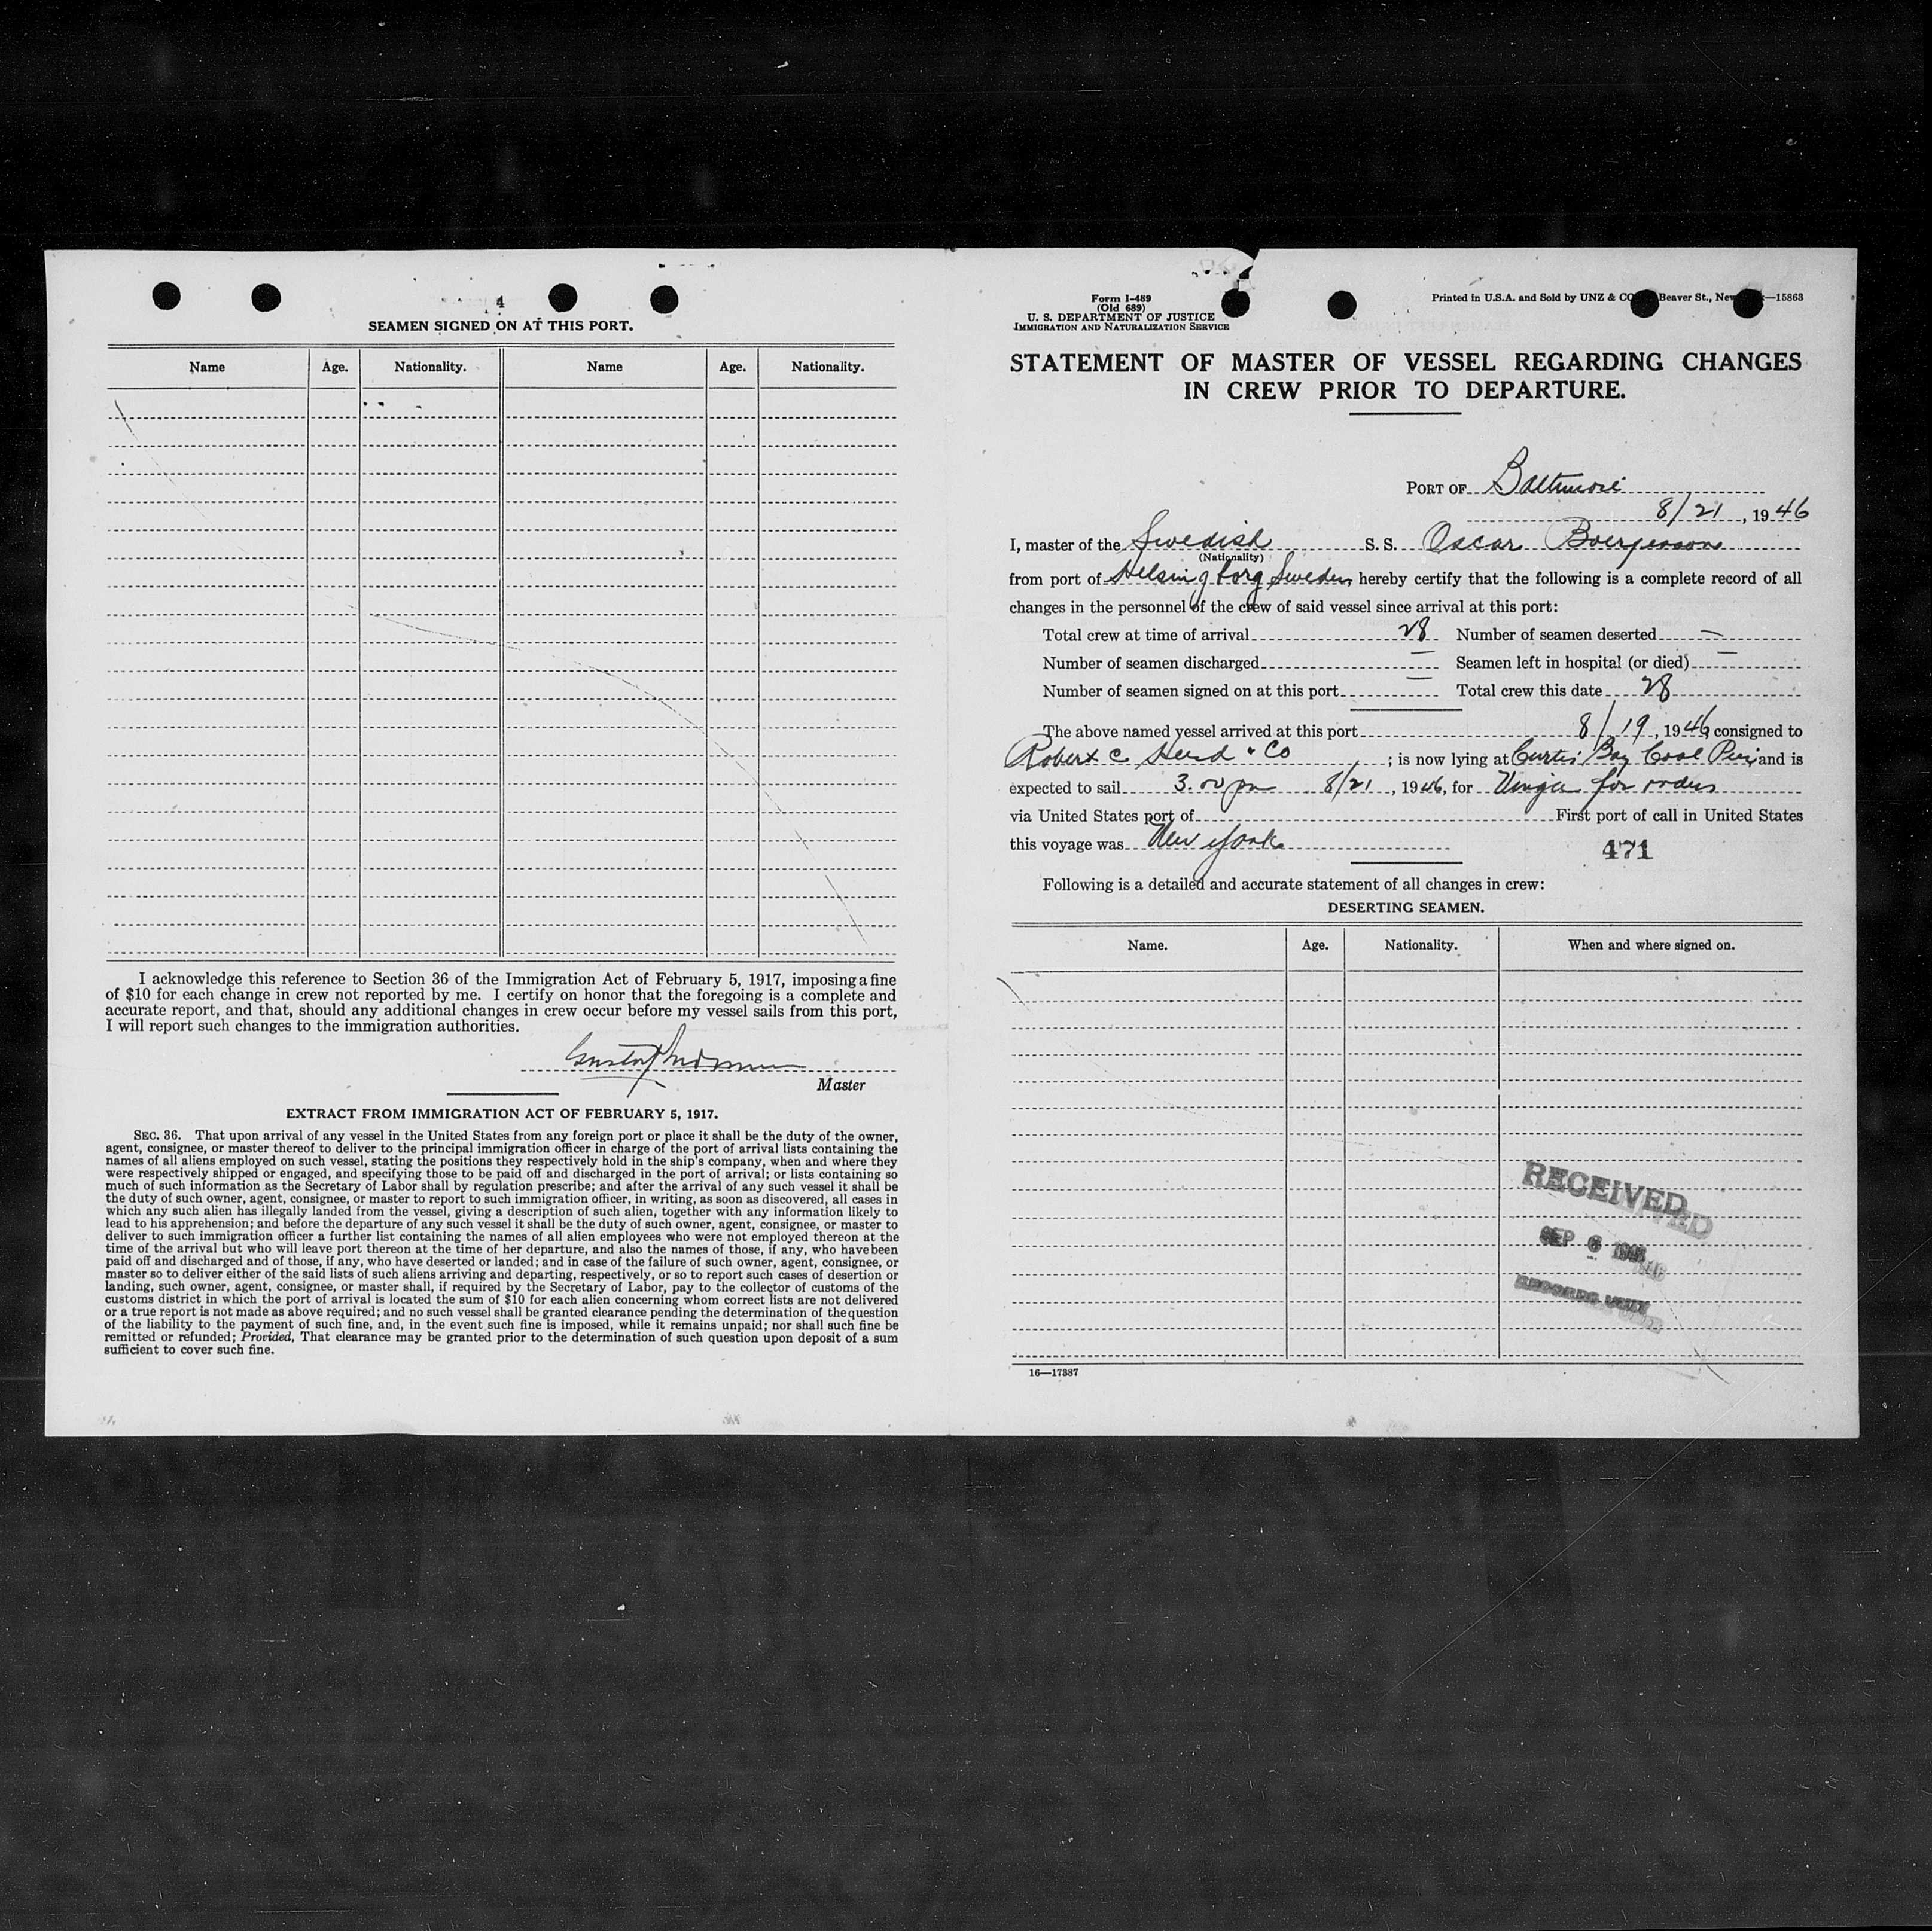 4
SEAMEN SIGNED ON AT THIS PORT.
Name Age. Nationality. Name Age. Nationality.
I acknowledge this reference to Section 36 of the Immigration Act of February 5, 1917, imposing a fine
of $10 for each change in crew not reported by me. I certify on honor that the foregoing is a complete and
accurate report, and that, should any additional changes in crew occur before my vessel sails from this port,
I will report such changes to the immigration authorities.
Gustaf
Master
EXTRACT FROM IMMIGRATION ACT OF FEBRUARY 5, 1917.
SEC. 36. That upon arrival of any vessel in the United States from any foreign port or place it shall be the duty of the owner,
agent, consignee, or master thereof to deliver to the principal immigration officer in charge of the port of arrival lists containing the
names of all aliens employed on such vessel, stating the positions they respectively hold in the ship's company, when and where they
were respectively shipped or engaged, and specifying those to be paid off and discharged in the port of arrival; or lists containing so
much of such information as the Secretary of Labor shall by regulation prescribe; and after the arrival of any such vessel it shall be
the duty of such owner, agent, consignee, or master to report to such immigration officer, in writing, as soon as discovered, all cases in
which any such alien has illegally landed from the vessel, giving a description of such alien, together with any information likely to
lead to his apprehension; and before the departure of any such vessel it shall be the duty of such owner, agent, consignee, or master to
deliver to such immigration officer a further list containing the names of all alien employees who were not employed thereon at the
time of the arrival but who will leave port thereon at the time of her departure, and also the names of those, if any, who have been
paid off and discharged and of those, if any, who have deserted or landed; and in case of the failure of such owner, agent, consignee, or
master so to deliver either of the said lists of such aliens arriving and departing, respectively, or so to report such cases of desertion or
landing, such owner, agent, consignee, or master shall, if required by the Secretary of Labor, pay to the collector of customs of the
customs district in which the port of arrival is located the sum of $10 for each alien concerning whom correct lists are not delivered
or a true report is not made as above required; and no such vessel shall be granted clearance pending the determination of the question
of the liability to the payment of such fine, and, in the event such fine is imposed, while it remains unpaid; nor shall such fine be
remitted or refunded; Provided, That clearance may be granted prior to the determination of such question upon deposit of a sum
sufficient to cover such fine.
Form I-489
(Old 689)
U. S. DEPARTMENT OF JUSTICE
IMMIGRATION AND NATURALIZATION SERVICE
Printed in U.S.A. and Sold by UNZ & CO Beaver St., New —15863
STATEMENT OF MASTER OF VESSEL REGARDING CHANGES
IN CREW PRIOR TO DEPARTURE.
PORT OF Baltimore
8/21, 1946
I, master of the Swedish S. S. Oscar
(Nationality)
from port of Helsingborg Sweden, hereby certify that the following is a complete record of all
changes in the personnel of the crew of said vessel since arrival at this port:
Total crew at time of arrival 28 Number of seamen deserted —
Number of seamen discharged — Seamen left in hospital (or died) —
Number of seamen signed on at this port — Total crew this date 28
The above named vessel arrived at this port 8/19, 1946, consigned to
Robert C Herd & Co ; is now lying at Curtis Bay Coal Pier and is
expected to sail 3.00 pm 8/21, 1946, for for orders
via United States port of First port of call in United States
this voyage was New York
471
Following is a detailed and accurate statement of all changes in crew:
DESERTING SEAMEN.
Name. Age. Nationality. When and where signed on.
RECEIVED
SEP 6 1946
RECORDS UNIT
16—17387